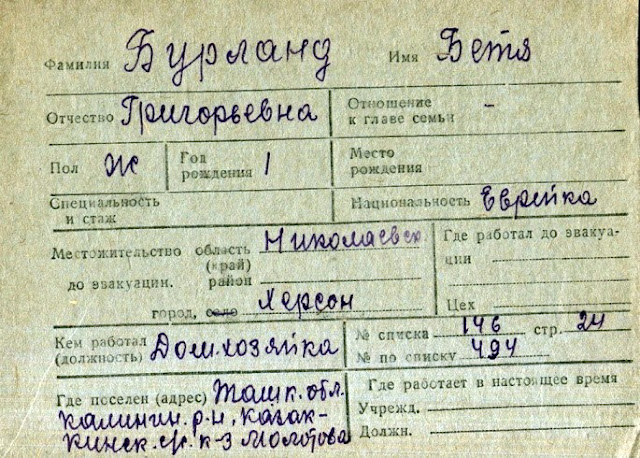 Фамилия Бурланд Имя Бетя
Отчество Григорьевна Отношение к главе семьи -
Пол Ж Год рождения 1 Место рождения
Специальность и стаж Национальность Еврейка
Местожительство область (край) Николаевск.
до эвакуации. район
город, село Херсон
Где работал до эвакуа-
ции
Цех
Кем работал (должность) Дом.хозяйка
№ списка 146 стр. 24
№ по списку 494
Где поселен (адрес) Ташк. обл.
Калинин. р-н, Казак-
кинск. с/с. к-з Молотова
Где работает в настоящее время
Учрежд.
Должн.